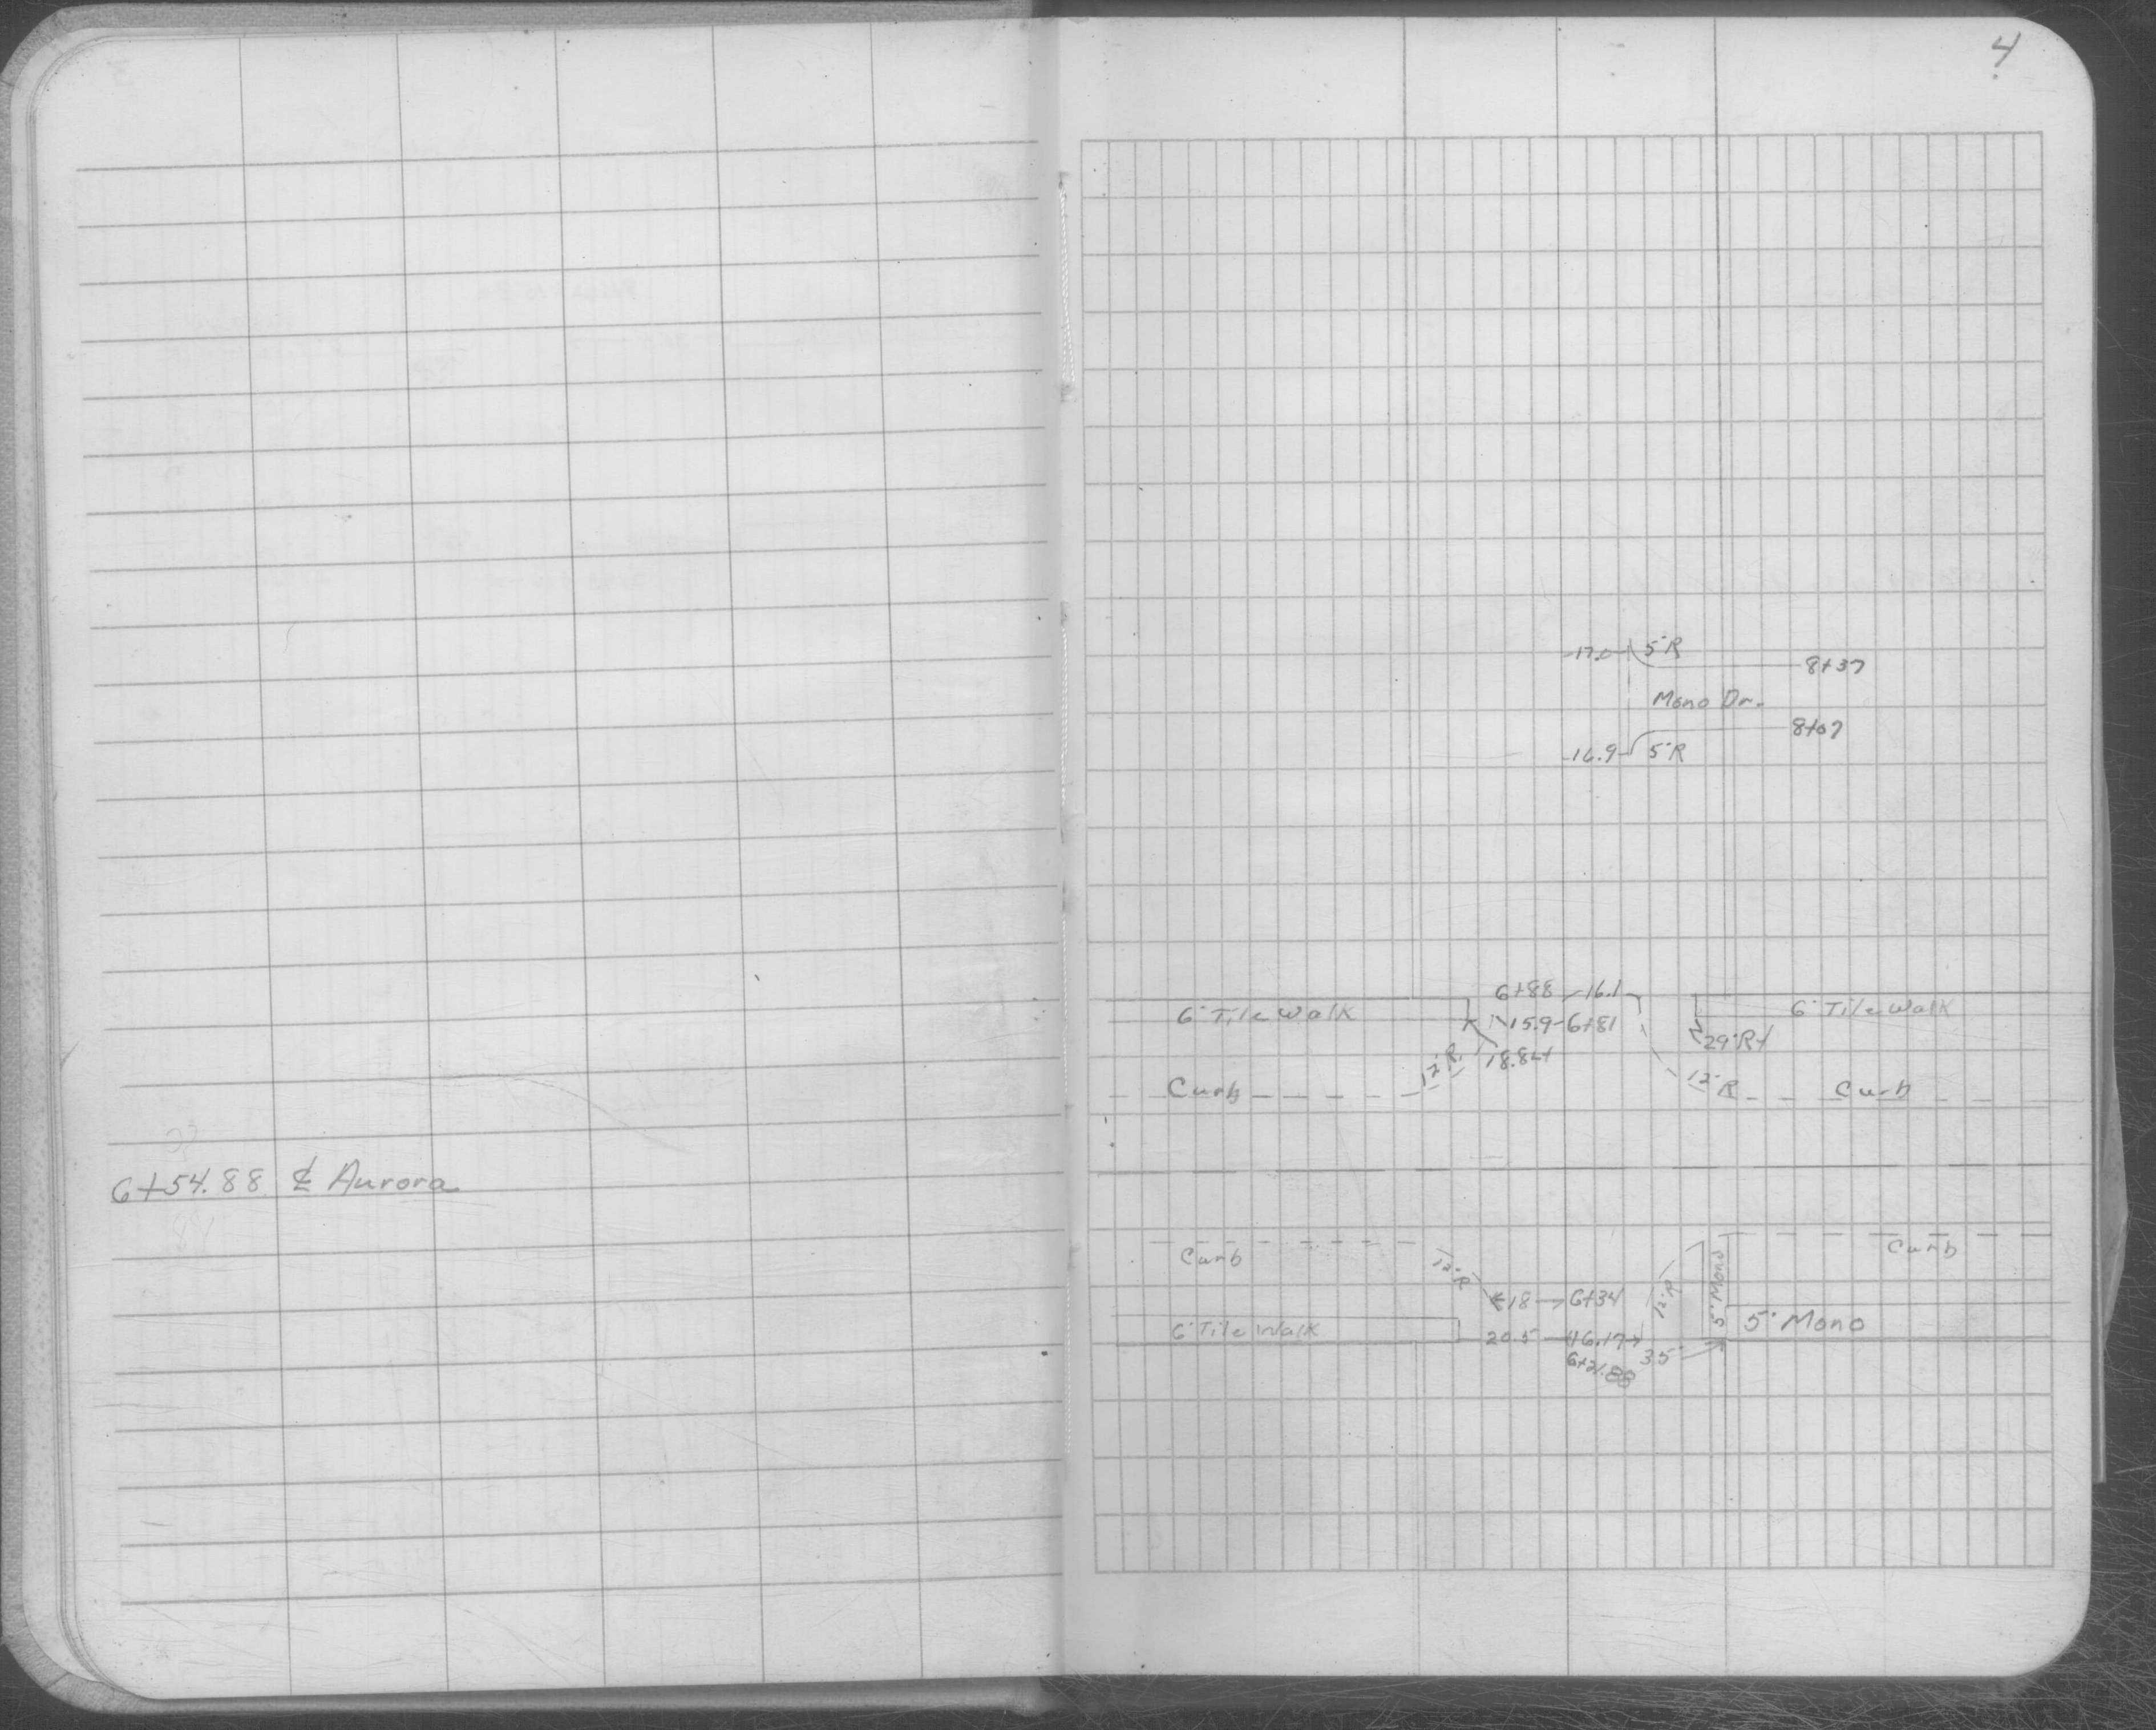 4
17.0 5'R
8+37
Mono Dr.
8+07
16.9 5'R
6+88 16.1
6' Tile Walk
15.9 6+81
6' Tile Walk
29' Rt
18.8 Lt
12'R.
12'R
Curb
Curb
6+54.88 ₵ Aurora
Curb
Curb
12'R
12'R
5' Mono
18 6+34
5' Mono
6' Tile Walk
20.5 16.17
35
6+21.88